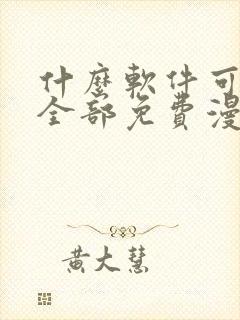 什麼軟件可
全部免費漫
黃大慧